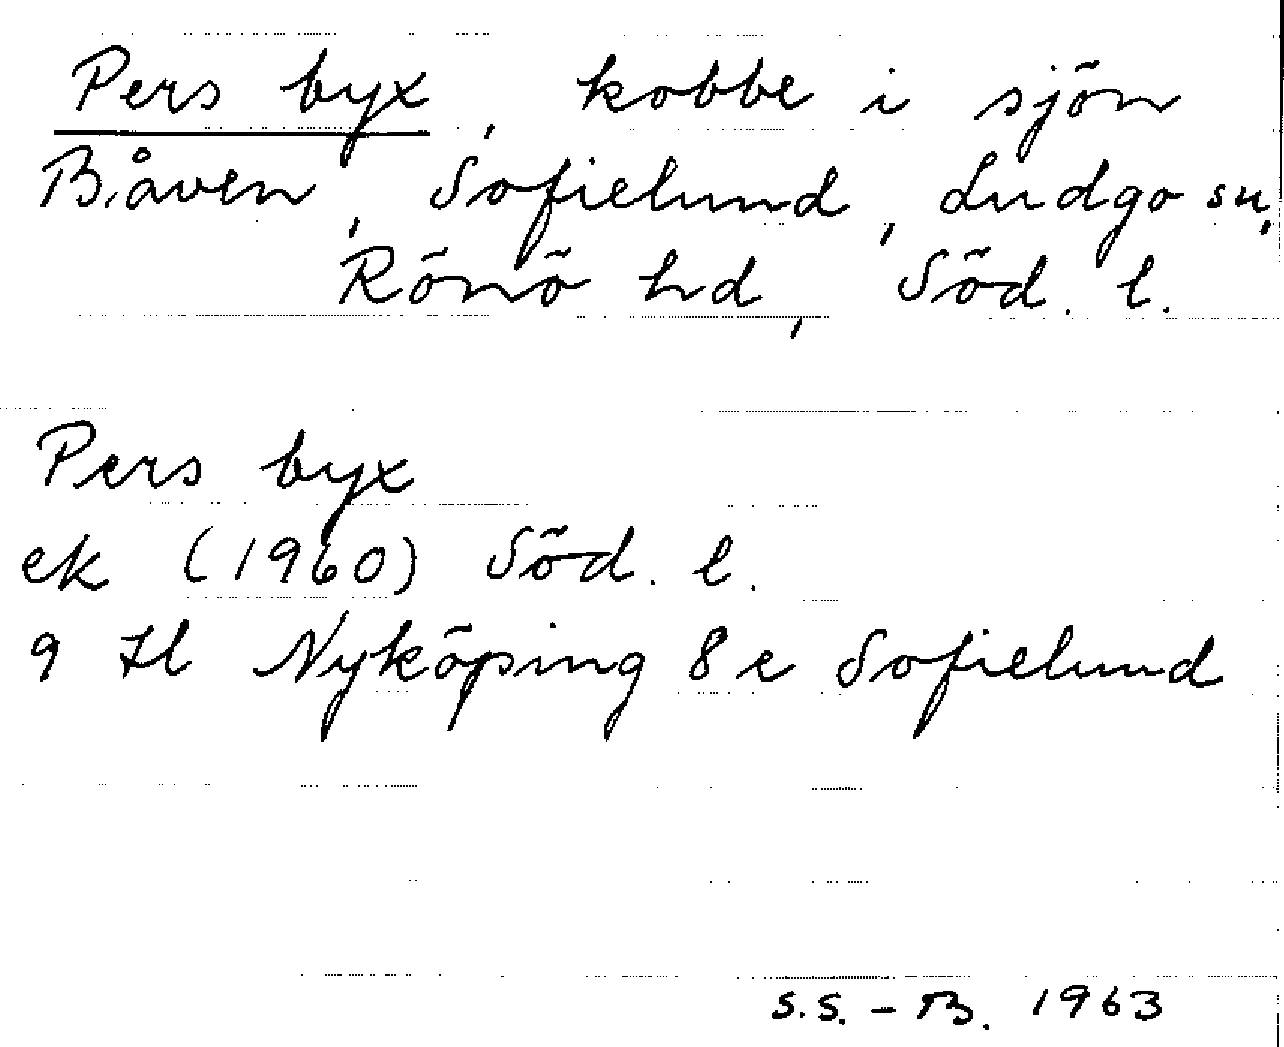 Pers byx, kobbe i sjön
Båven, Sofielund, Ludgo sn,
Rönö hd, Söd. l.
Pers byx
ek (1960) Söd. l.
9 Hl Nyköping 8 e Sofielund
S.S. - B. 1963